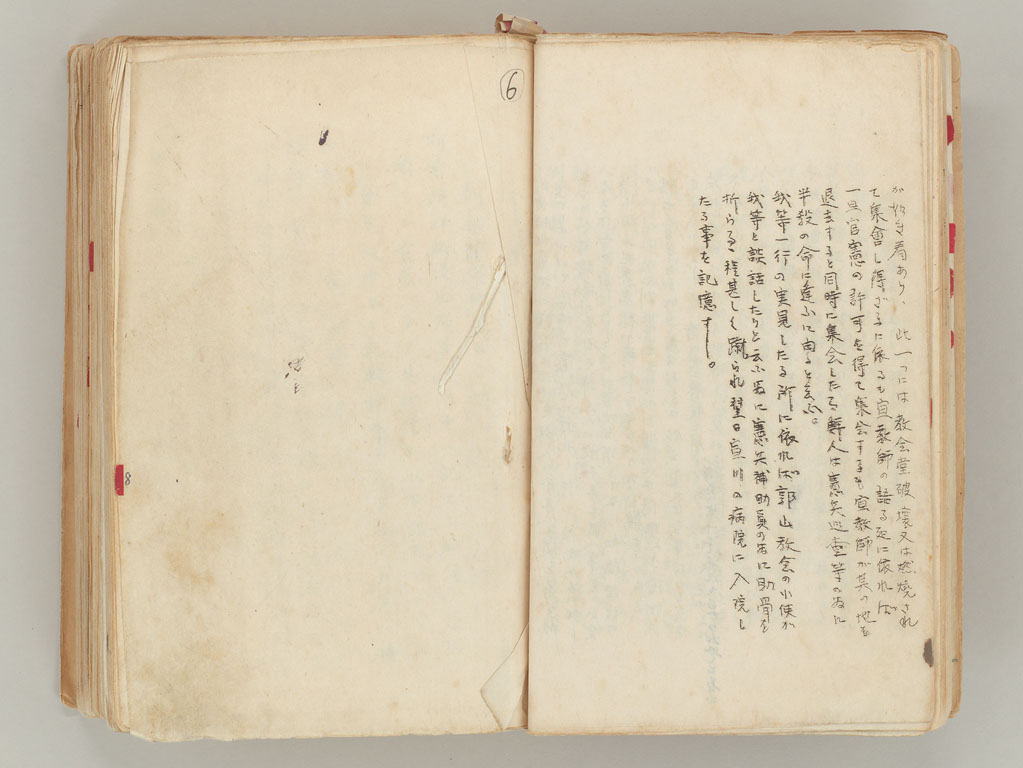 が如き看あり、此一つには教会堂破壊又は燃焼され
て集會し得ざるに依るも宣教師の語る処に依れば
一旦官憲の許可を得て集会するも宣教師が其の地を
退去すると同時に集会したる鮮人は憲兵巡査等の為に
半殺の命に逢ふに由ると云ふ。
我等一行の実見したる所に依れば郭山教会の小使が
我等と談話したりと云ふ為に憲兵補助員の為に肋骨を
折らるゝ程甚しく蹴られ翌日宣川の病院に入院し
たる事を記憶す。
6
8